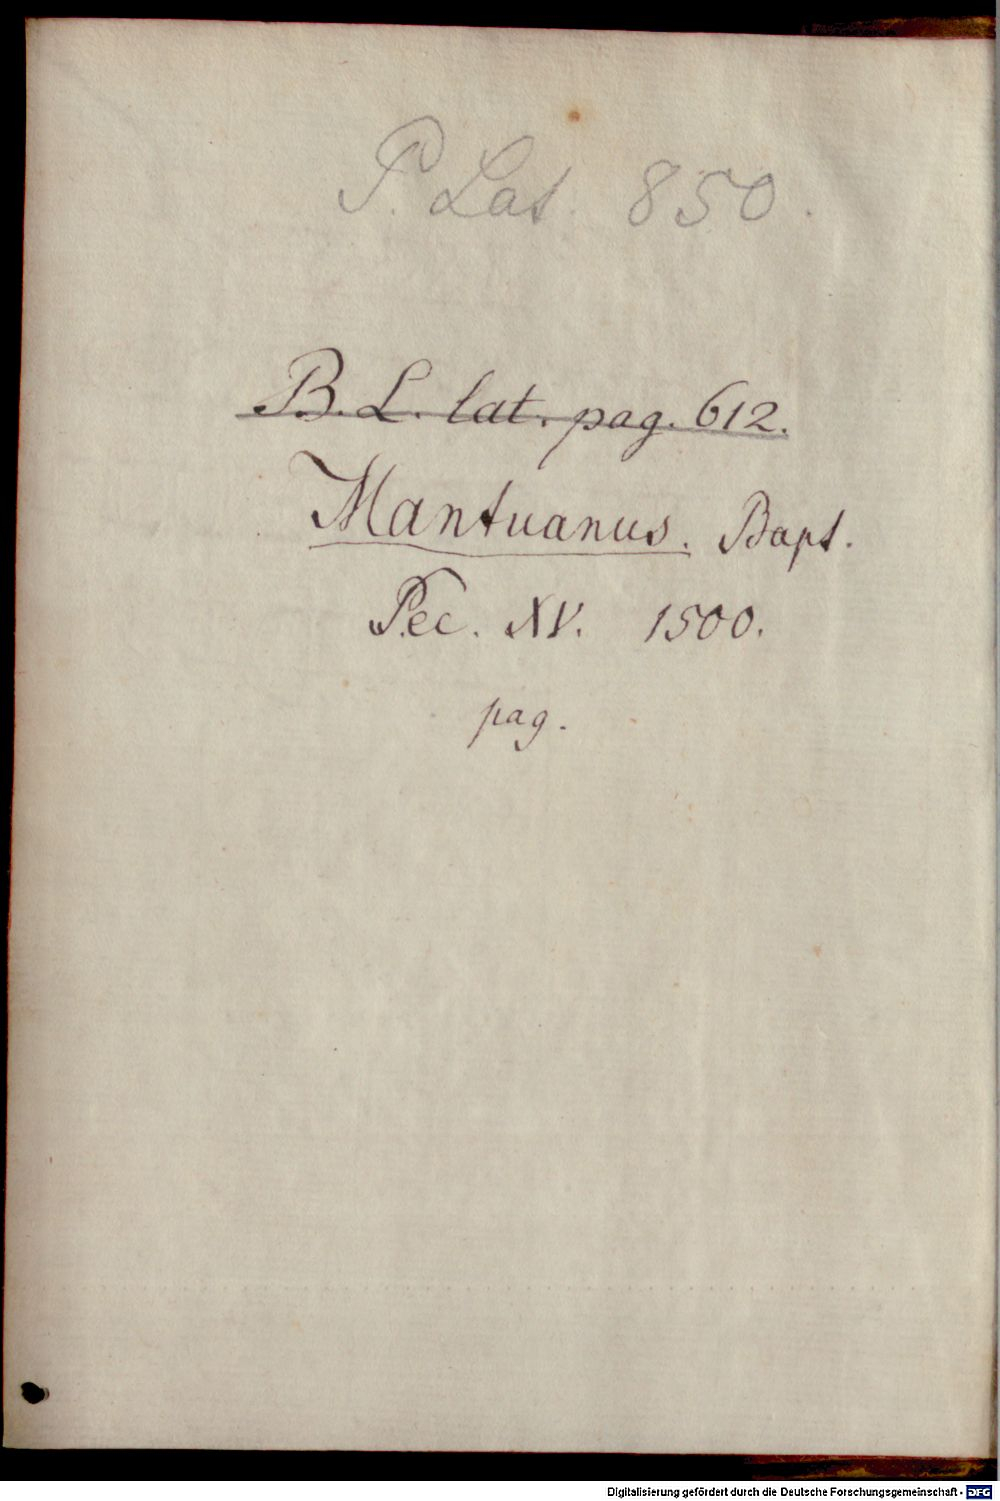 P. Lat. 850.
B. L. lat. pag. 612.
Mantuanus. Bapt.
P. ec. XV. 1500.
pag.
Digitalisierung gefördert durch die Deutsche Forschungsgemeinschaft - DFG